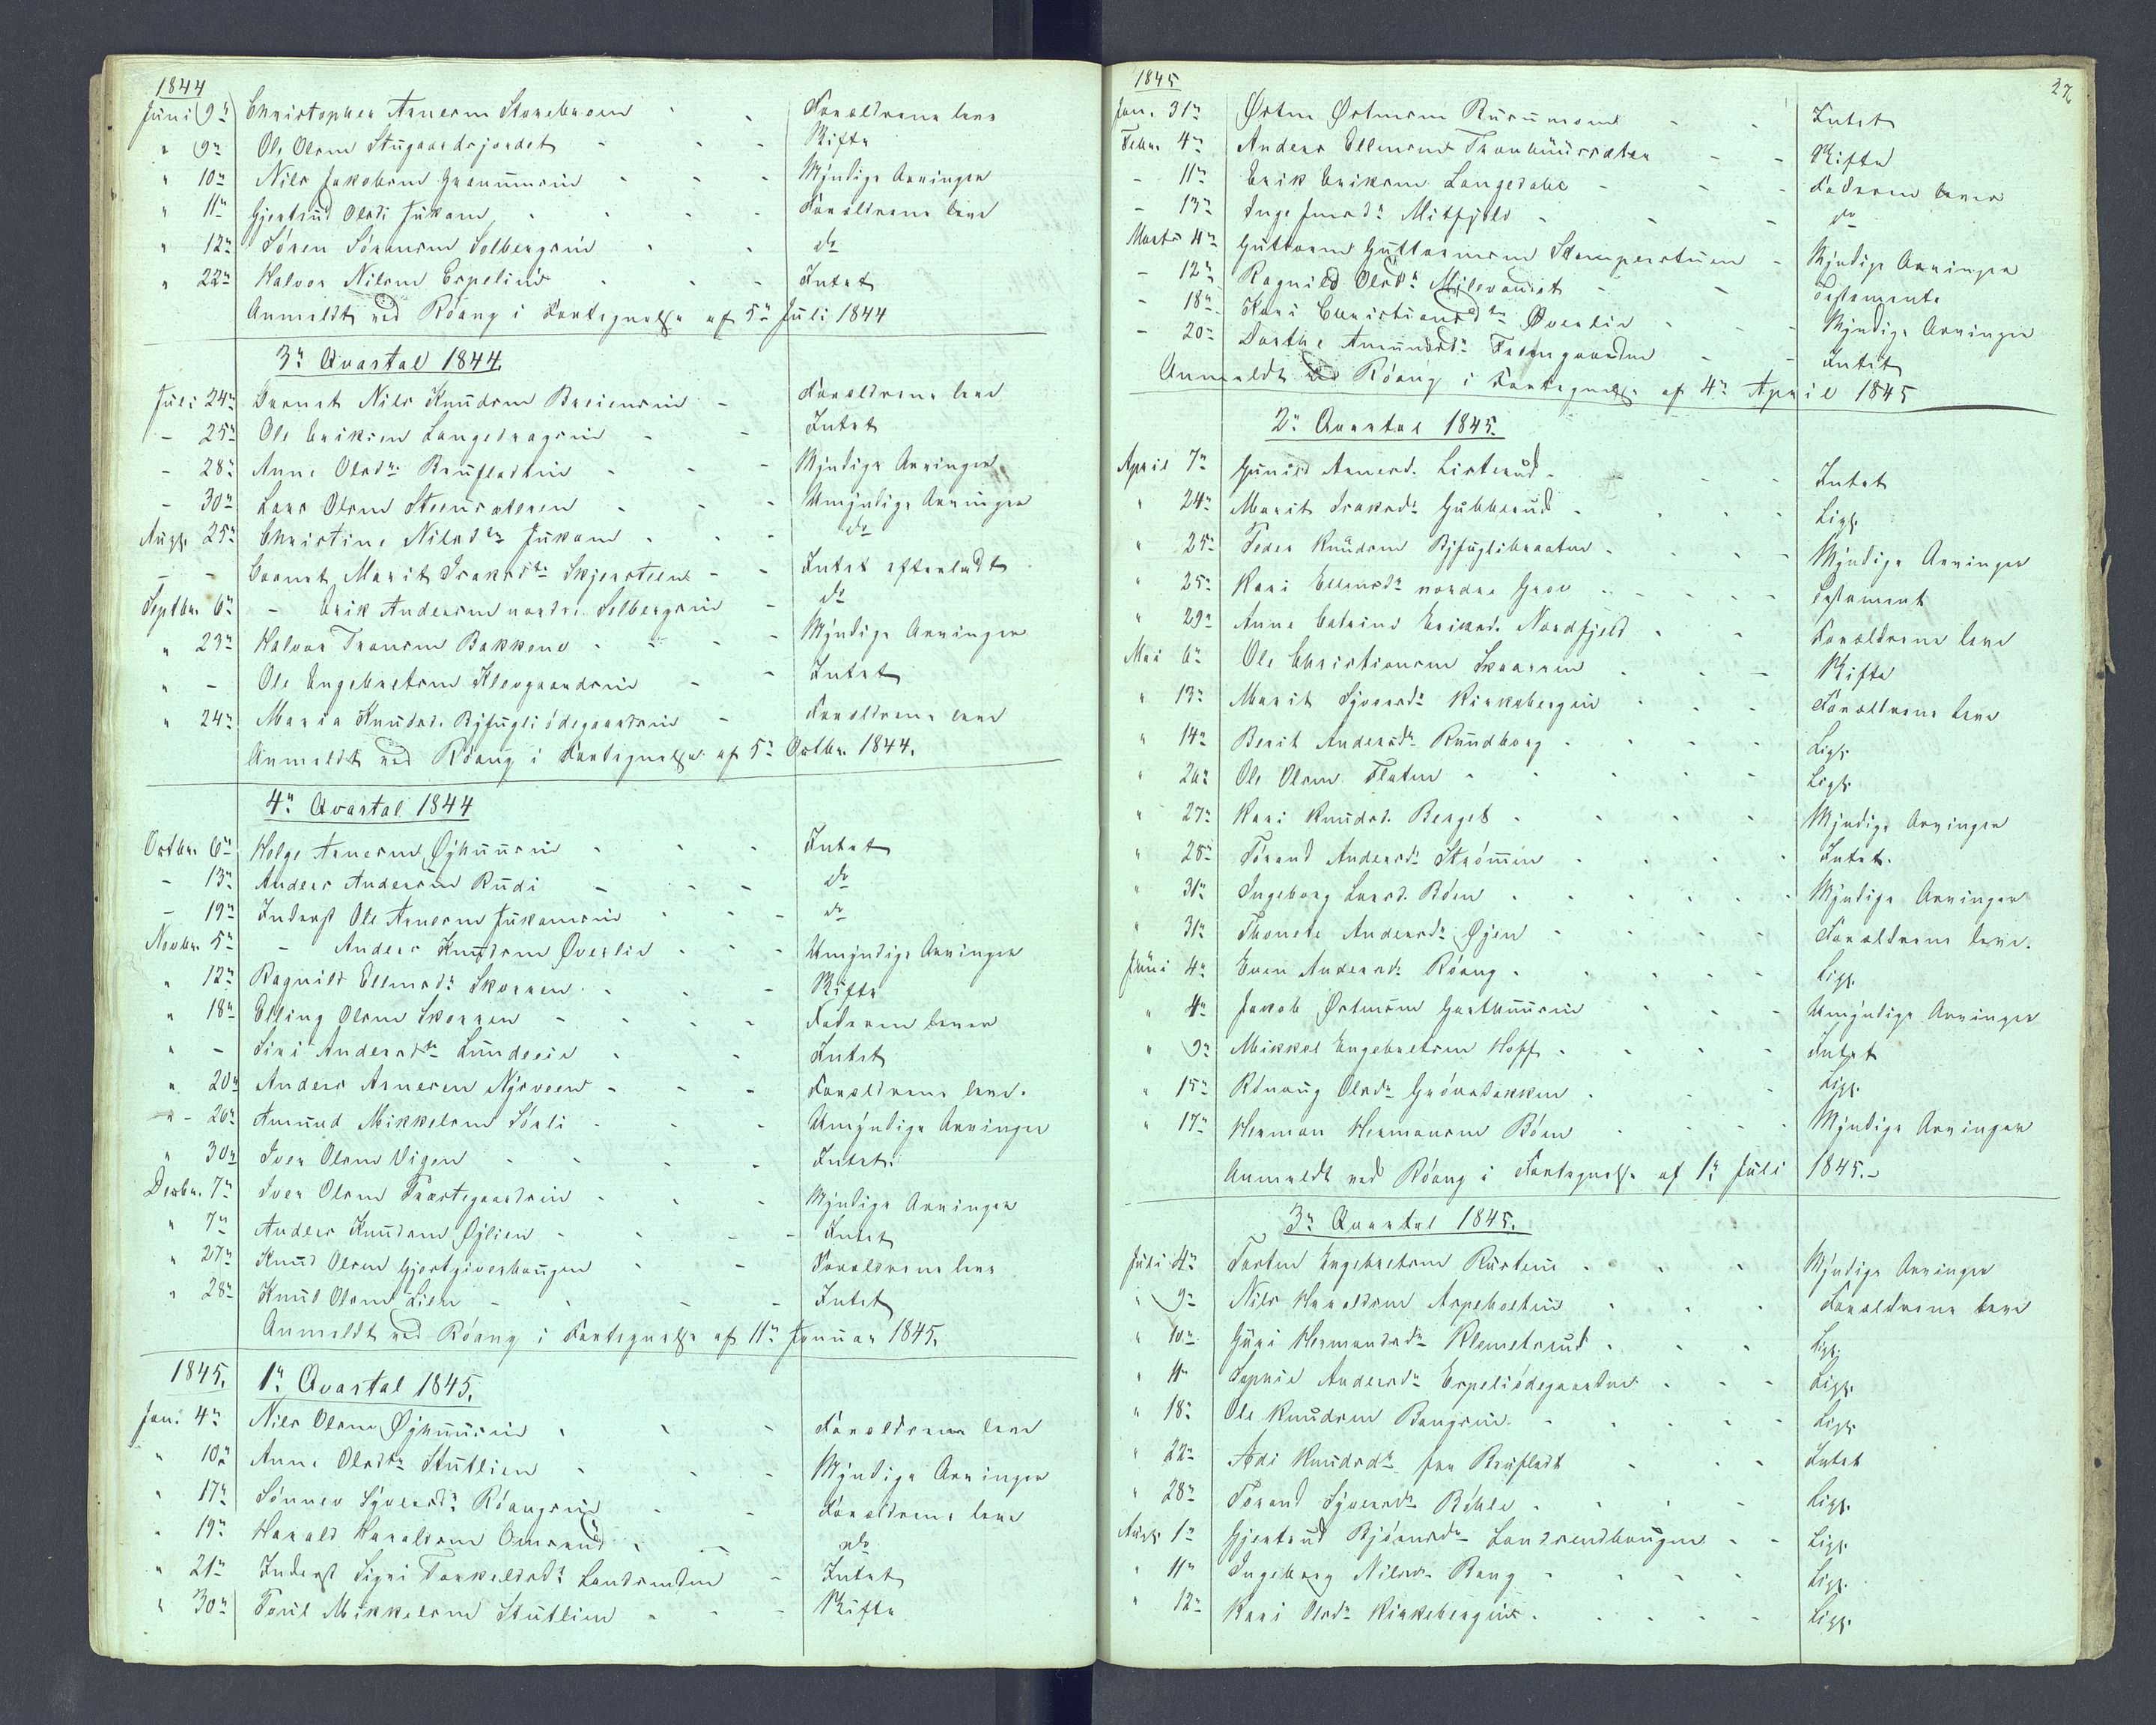 1844
Juni 9n Christopher Arnesen Storebraaen Forældrene leve
" 9n Ole Olsen Stugaardsjordet Skifte
" 10n Nils Jakobsen Myndige Arvinger
" 11n Gjertrud Olsdr Jukam Forældrene leve
" 12n Sören Sörensen Solbergseie do
" 22n Halvor Nilsen Espelien Intet
Anmeldt ved Röang i Fortegnelse af 5n Juli 1844
3n Qvartal 1844.
Juli 24n Barnet Nils Knudsen Breieneie Forældrene leve
- 25n Ole Eriksen Langedrageie Intet
- 28n Anne Olsdr Brufladteie Myndige Arvinger
- 30n Lars Olsen Steensæteren Umyndige Arvinger
Augst 25n Christine Nilsdtr Jukam do
- - Barnet Marit Isaksdtr Skjersteen Intet efterladt
Septbr 6n - Erik Andersen nordre Solbergeie do
" 23n Halvor Transen Bakkene Myndige Arvinger
" - Ole Engebretsen Klevgaardseie Intet
" 24n Maria Knudsd. Bjfugliödegaardeie Forældrene leve
Anmeldt ved Röang i Fortegnelse af 5n Octbr 1844.
4n Qvartal 1844
Octbr 6n Helge Arnesen Øjhuuseie Intet
- 13n Anders Andersen Rudi do
- 19n Inderst Ole Arnesen Jukameie do
Novbr 5n - Anders Knudsen Øverlie Umyndige Arvinger
" 12n Ragnild Ellensdr Skoren Skifte
" 18n Elling Olsen Skoren Faderen lever
" - Siri Andersdtr Lundeeie Intet
" 20n Anders Arnesen Nÿsveen Forældrene leve.
" - 26n Amund Mikkelsen Sörli Umyndige Arvinger
" 30n Iver Olsen Vigen Intet.
Decbr. 7n Iver Olsen Præstegaardeie Myndige Arvinger
" 7n Anders Knudsen Øÿlien Intet
" 27n Knud Olsen Gjestgiverhaugen Forældrene leve
" 28n Knud Olsen Lien Intet
Anmeldt ved Röang i Fortegnelse af 11n Januar 1845.
1845. 1n Qvartal 1845.
Jan. 4n Nils Olsen Øÿhuuseie Forældrene leve
" 10n Anne Olsdtr Stutlien Myndige Arvinger
" 17n Sönnev Sÿversdr Röangeie Forældrene leve
" 19n Harald Haraldsen Omsrud do
" 21n Inderst Sigri Torkeldsdr Landsenden Intet
" 30n Poul Mikkelsen Stutlien Skifte
1845 27
Jan. 31n Østen Østensen Ruumoen Intet
Febr. 4n Anders Ellensen Tronhuussæter Skifte
- 11n Erik Eriksen Langedahl Faderen lever
- 13n Inge Jensdr Mitfjeld do
Marts 4n Guttorm Guttormsen Stampestuen Myndige Arvinger
- 12n Ragnild Olsdr Milevandet Testamente
- 18n Kari Christiansdtr Øverlie Myndige Arvinger
- 20n Dorthe Amundsdr Intet
Anmeldt ved Röang i Fortegnelse af 4n April 1845
2n Qvartal 1845.
April 7n Gunild Arnesd. Listerud Intet
" 24n Marit Isaksdr Gubberud Lige.
" 25n Peder Knudsen Bjfuglibraaten Myndige Arvinger
" 25n Kari Ellensdr nordre Grov Testament
" 29n Anne Catrine Eriksd. Nordfjeld Forældrene leve
Mai 6n Ole Christiansen Skaaren Skifte
" 13n Marit Syversdr Kirkebergeie Forældrene leve
" 14n Berit Andersdr Rundborg Lige.
" 26n Ole Olsen Flaten Lige.
" 27n Kari Knudsd. Berget Myndige Arvinger
" 28n Törand Andersdr Strömmen Intet.
" 31n Ingeborg Larsd. Böen Myndige Arvinger
" 31n Thonete Andersdr Øjen Forældrene leve.
Juni 4n Even Andersdr Röang Lige.
" 4n Jakob Østensen Garthuuseie Umyndige Arvinger
" 9n Mikkel Engebretsen Hoff Intet
" 15n Rönnaug Olsdr Grönebakken Lige.
" 17n Herman Hermansen Böen Myndige Arvinger
Anmeldt ved Röang i Fortegnelse af 1n Juli 1845.-
3n Qvartal 1845.
Juli 4n Torten Engebretsen Rusteeie Myndige Arvinger
" 9n Nils Haraldsen Aspeholteie Forældrene leve
" 10n Guri Hermansdr Klemetsrud Lige.
" 11n Sophie Andersdr Espeliödegaarden Lige.
" 18n Ole Knudsen Bangeie Lige.
" 22n Adi Knudsdr fra Brufladt Intet
" 28n Törand Sÿversdr Böhle Lige.
Augst 1n Gjertrud Bjönsdr Landsendhaugen Lige.
" 11n Ingeborg Nilsdr Bang Lige.
" 12n Kari Olsdr Kirkebergeie Lige.